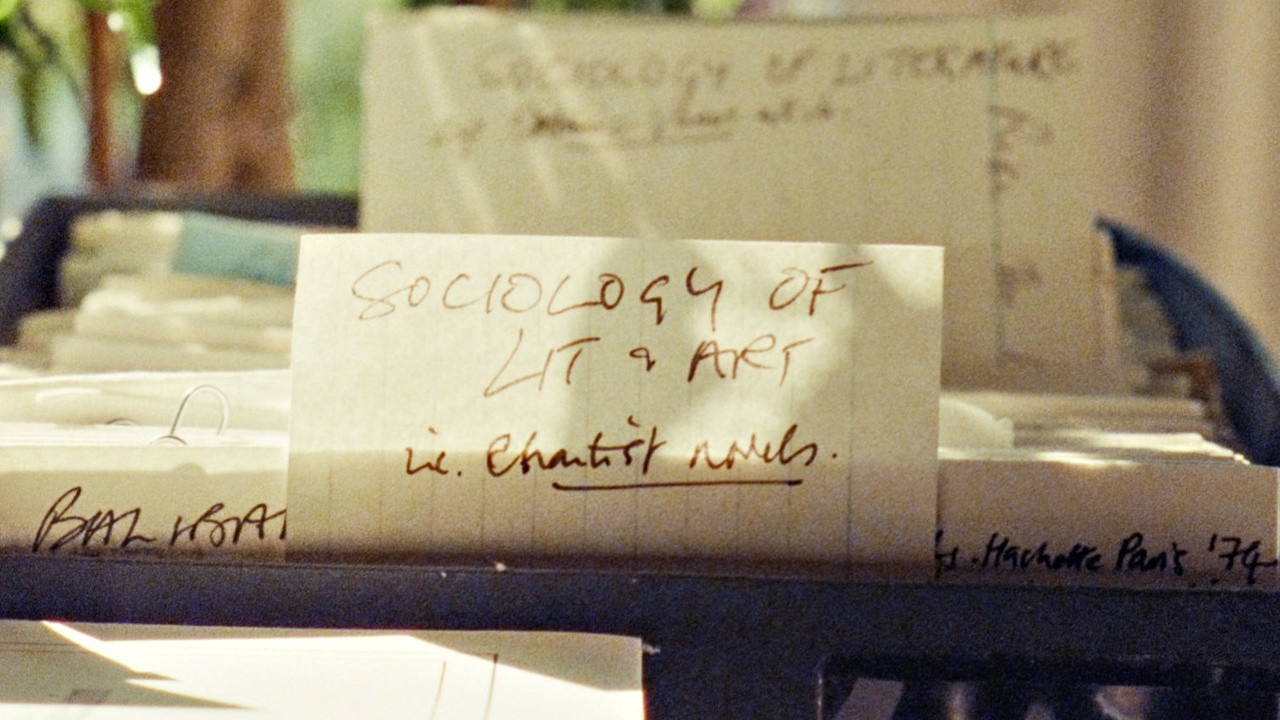 SOCIOLOGY OF LITERATURE
SOCIOLOGY OF
LIT & ART
i.e. Chartist novels.
BALIBA
. Hachette Paris '74